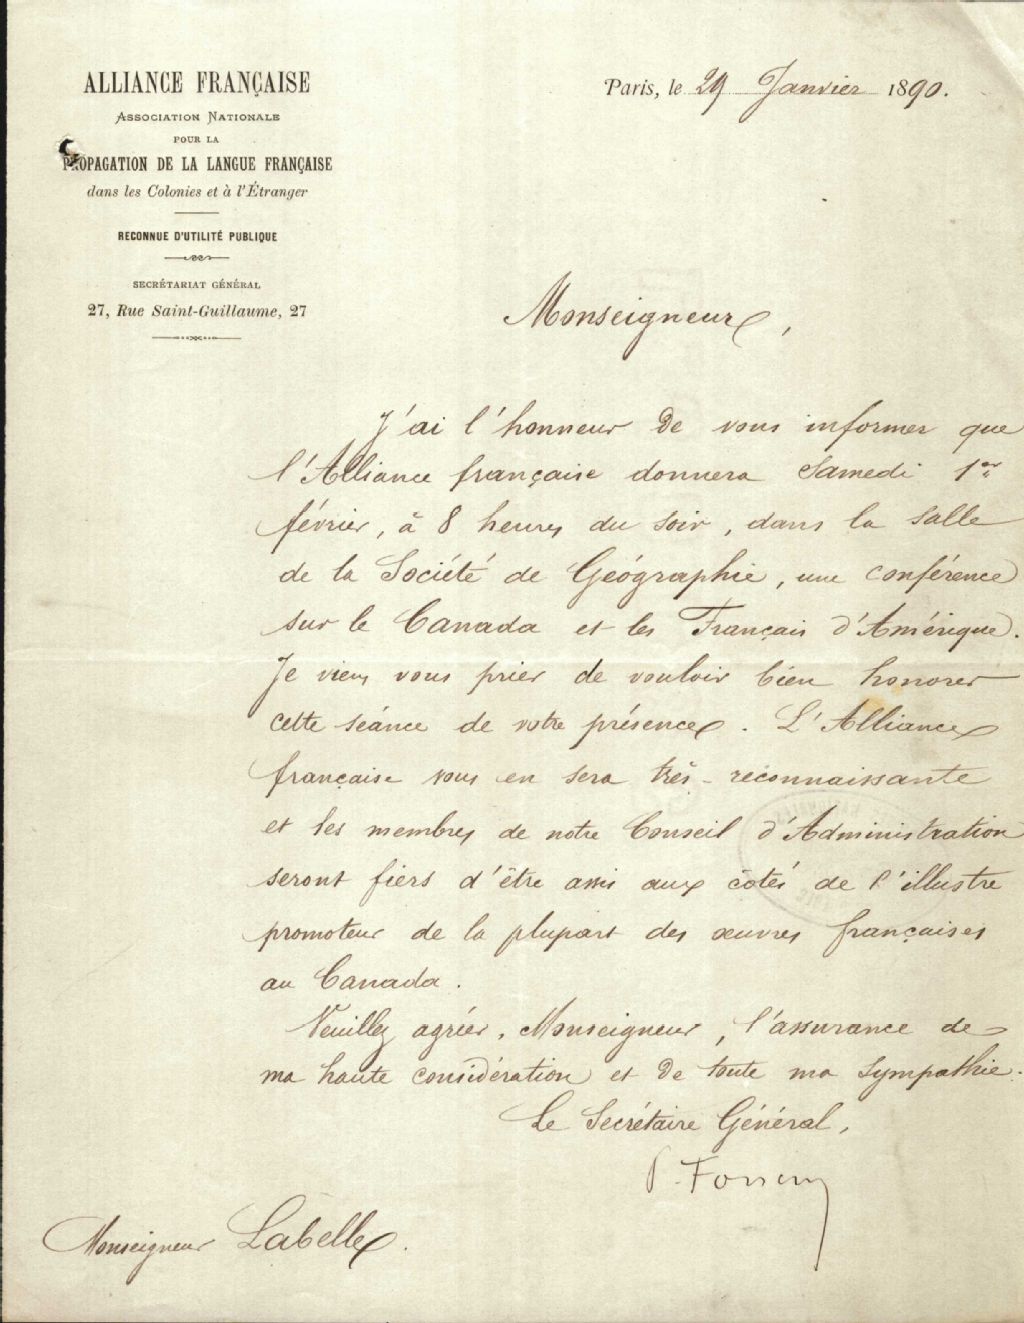 ALLIANCE FRANÇAISE
ASSOCIATION NATIONALE
POUR LA
PROPAGATION DE LA LANGUE FRANÇAISE
dans les Colonies et à l'Étranger
RECONNUE D'UTILITÉ PUBLIQUE
SECRÉTARIAT GÉNÉRAL
27, Rue Saint-Guillaume, 27
Paris, le 29 Janvier 1890.
Monseigneur,
J'ai l'honneur de vous informer que
l'Alliance française donnera Samedi 1er
février, à 8 heures du soir, dans la salle
de la Société de Géographie, une conférence
sur le Canada et les Français d'Amérique.
Je viens vous prier de vouloir bien honorer
cette séance de votre présence. L'Alliance
française vous en sera très-reconnaissante
et les membres de notre Conseil d'Administration
seront fiers d'être assis aux côtés de l'illustre
promoteur de la plupart des œuvres françaises
au Canada.
Veuillez agréer, Monseigneur, l'assurance de
ma haute considération et de toute ma sympathie.
Le Secrétaire Général,
P. Foncin
Monseigneur Labelle.